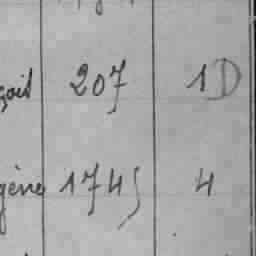 çois 207 1D
gène 1745 4